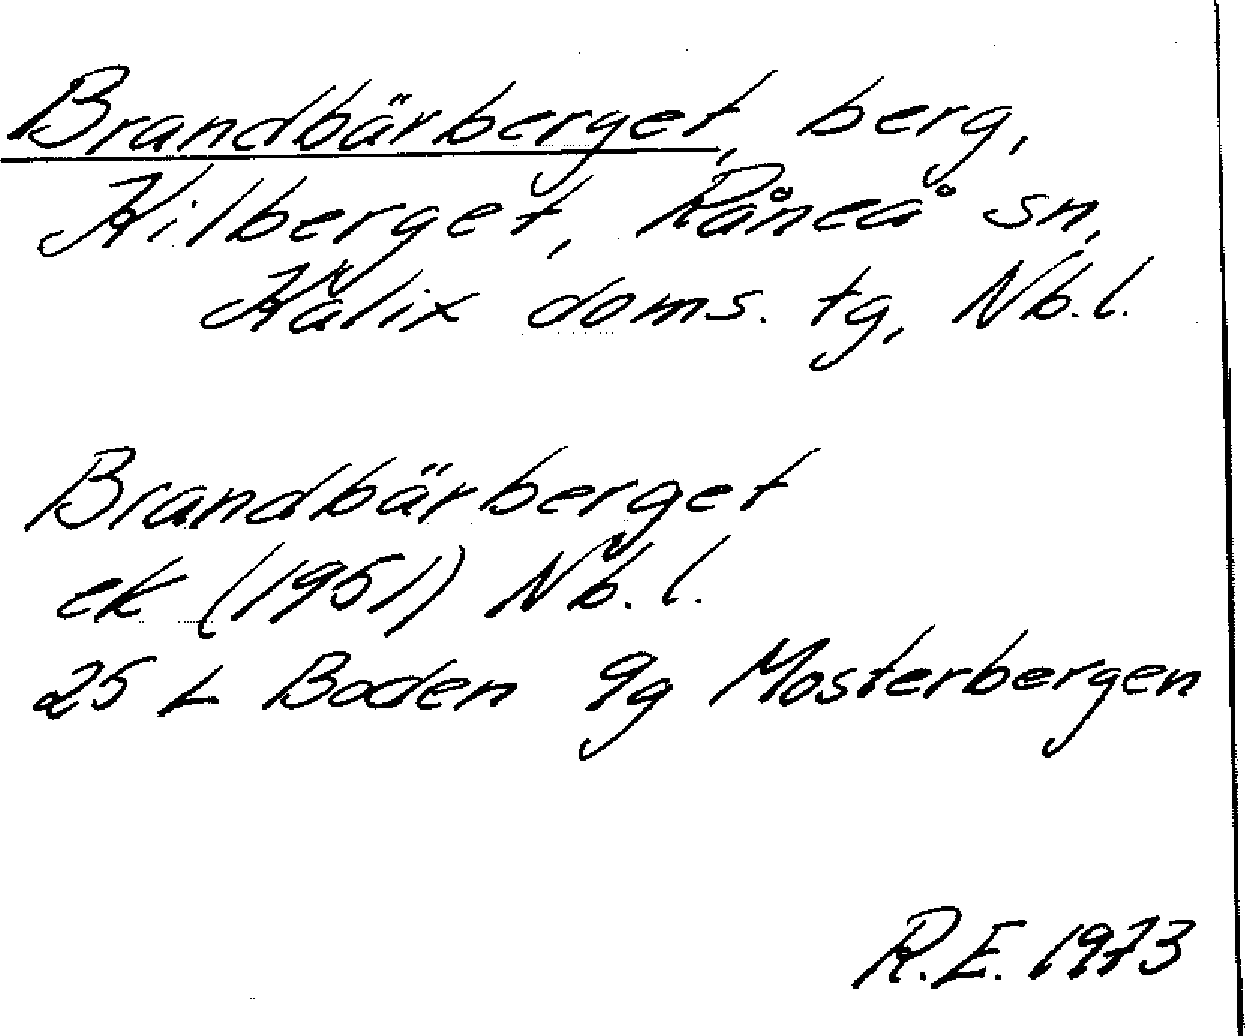 Brandbärberget, berg,
Hilberget, Råneå sn,
Kalix doms. tg, Nb.l.
Brandbärberget
ek (1951) Nb.l.
25 L Boden 9g Mosterbergen
R.E. 1973